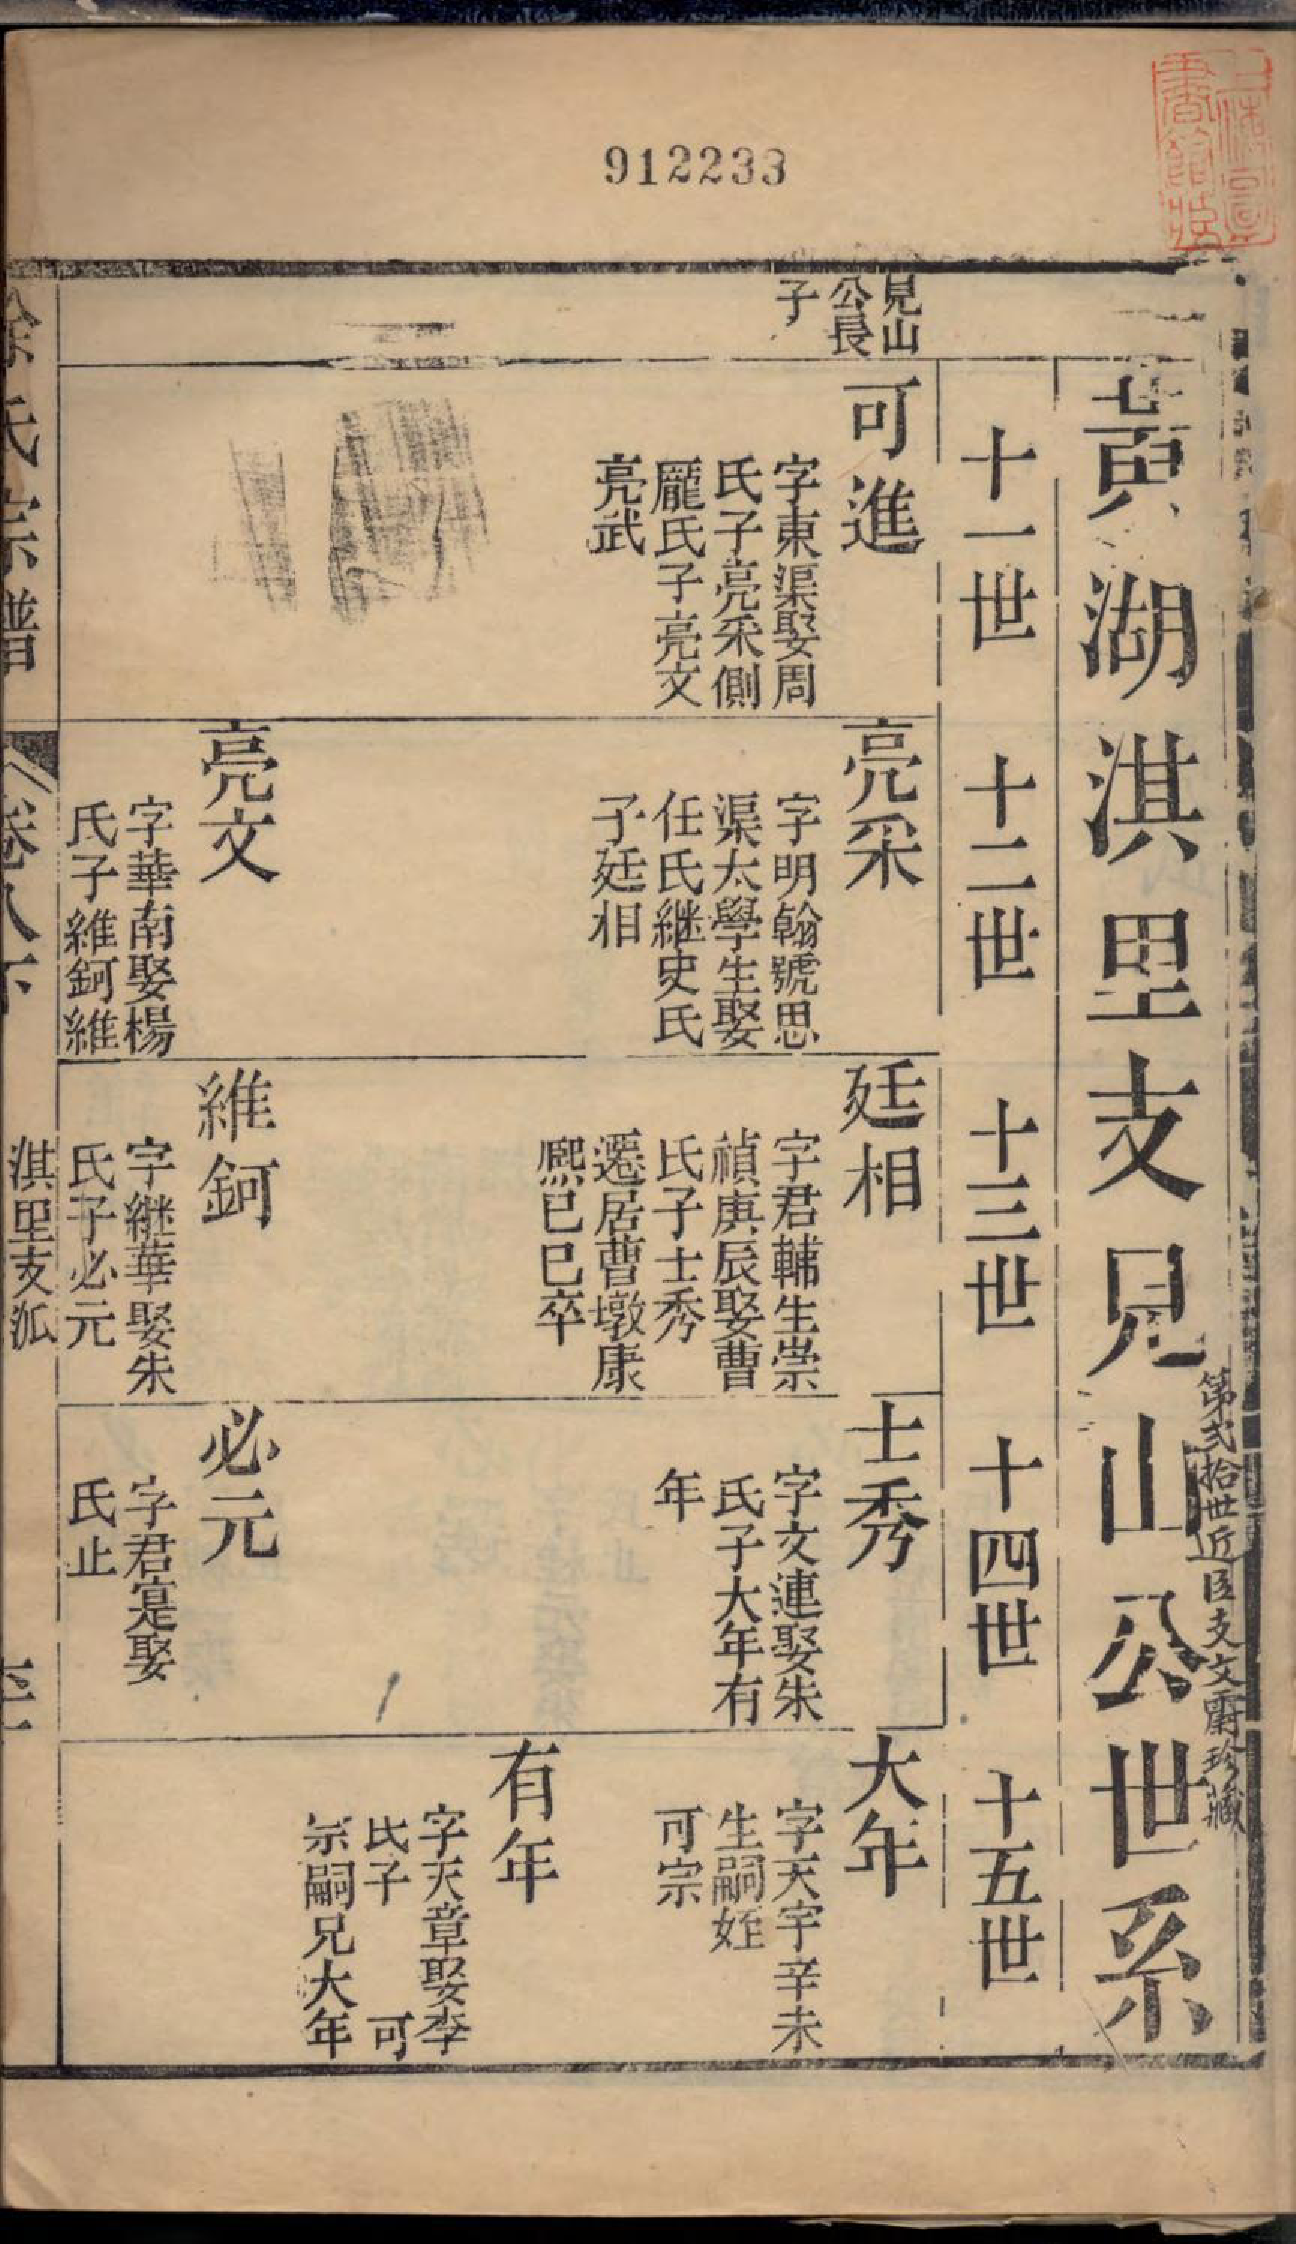 912233
上海圖
書館藏
黃湖淇里支見山公世系
第弍拾世近臣支文爵珍藏
十一世
十二世
十三世
十四世
十五世
見山
公長
子
可進
字東渠娶周
氏子亮采側
龎氏子亮文
亮武
亮采
字明翰號思
渠太學生娶
任氏継史氏
子廷相
亮文
字華南娶楊
氏子維鈳維
廷相
字君輔生崇
禎庚辰娶曹
氏子士秀
遷居曹墩康
熈己巳卒
維鈳
字継華娶朱
氏子必元
士秀
字文連娶朱
氏子大年有
年
必元
字君寔娶
氏止
大年
字天宇辛未
生嗣姪
可宗
有年
字天章娶李
氏子　可
宗嗣兄大年
徐氏宗譜
卷八下
淇里支派